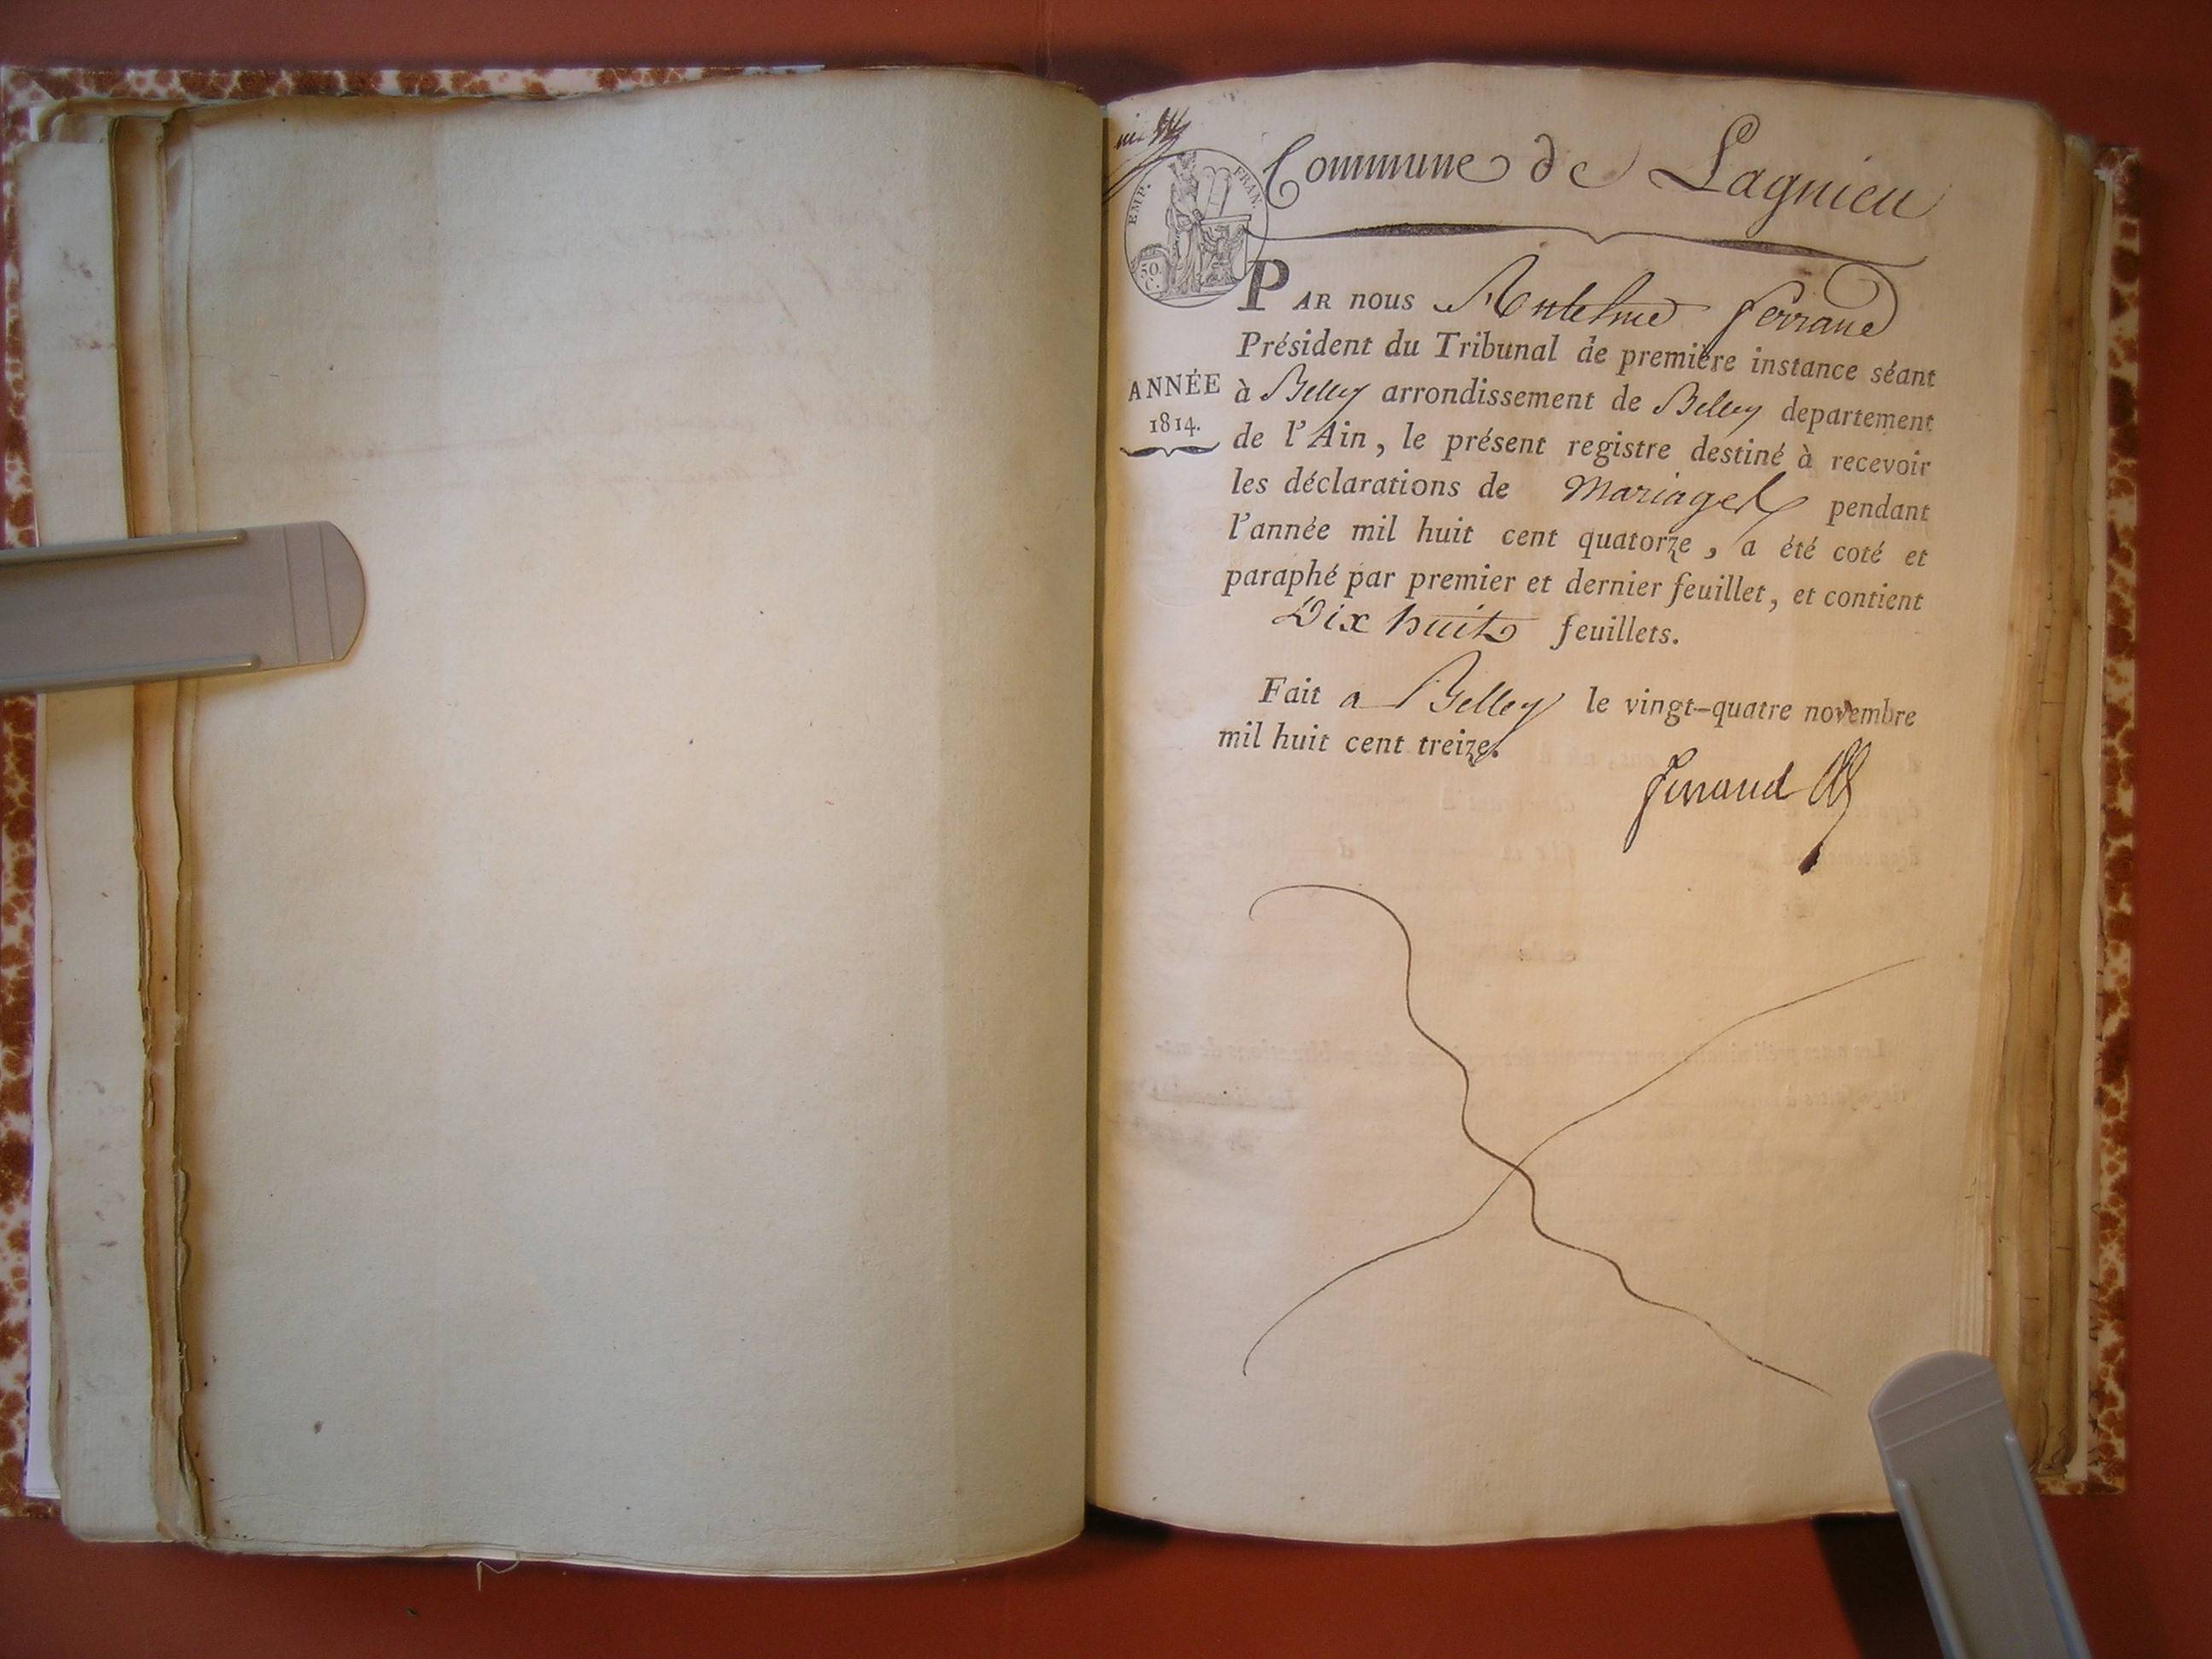 Commune de Lagnieu
EMP. FRAN.
50.
C.
PAR nous Antelme ferrand
Président du Tribunal de première instance séant
ANNÉE
1814.
à Belley arrondissement de Belley departement
de l'Ain, le présent registre destiné à recevoir
les déclarations de Mariages pendant
l'année mil huit cent quatorze, a été coté et
paraphé par premier et dernier feuillet, et contient
Dix huit feuillets.
Fait a Belley le vingt-quatre novembre
mil huit cent treize.
ferrand